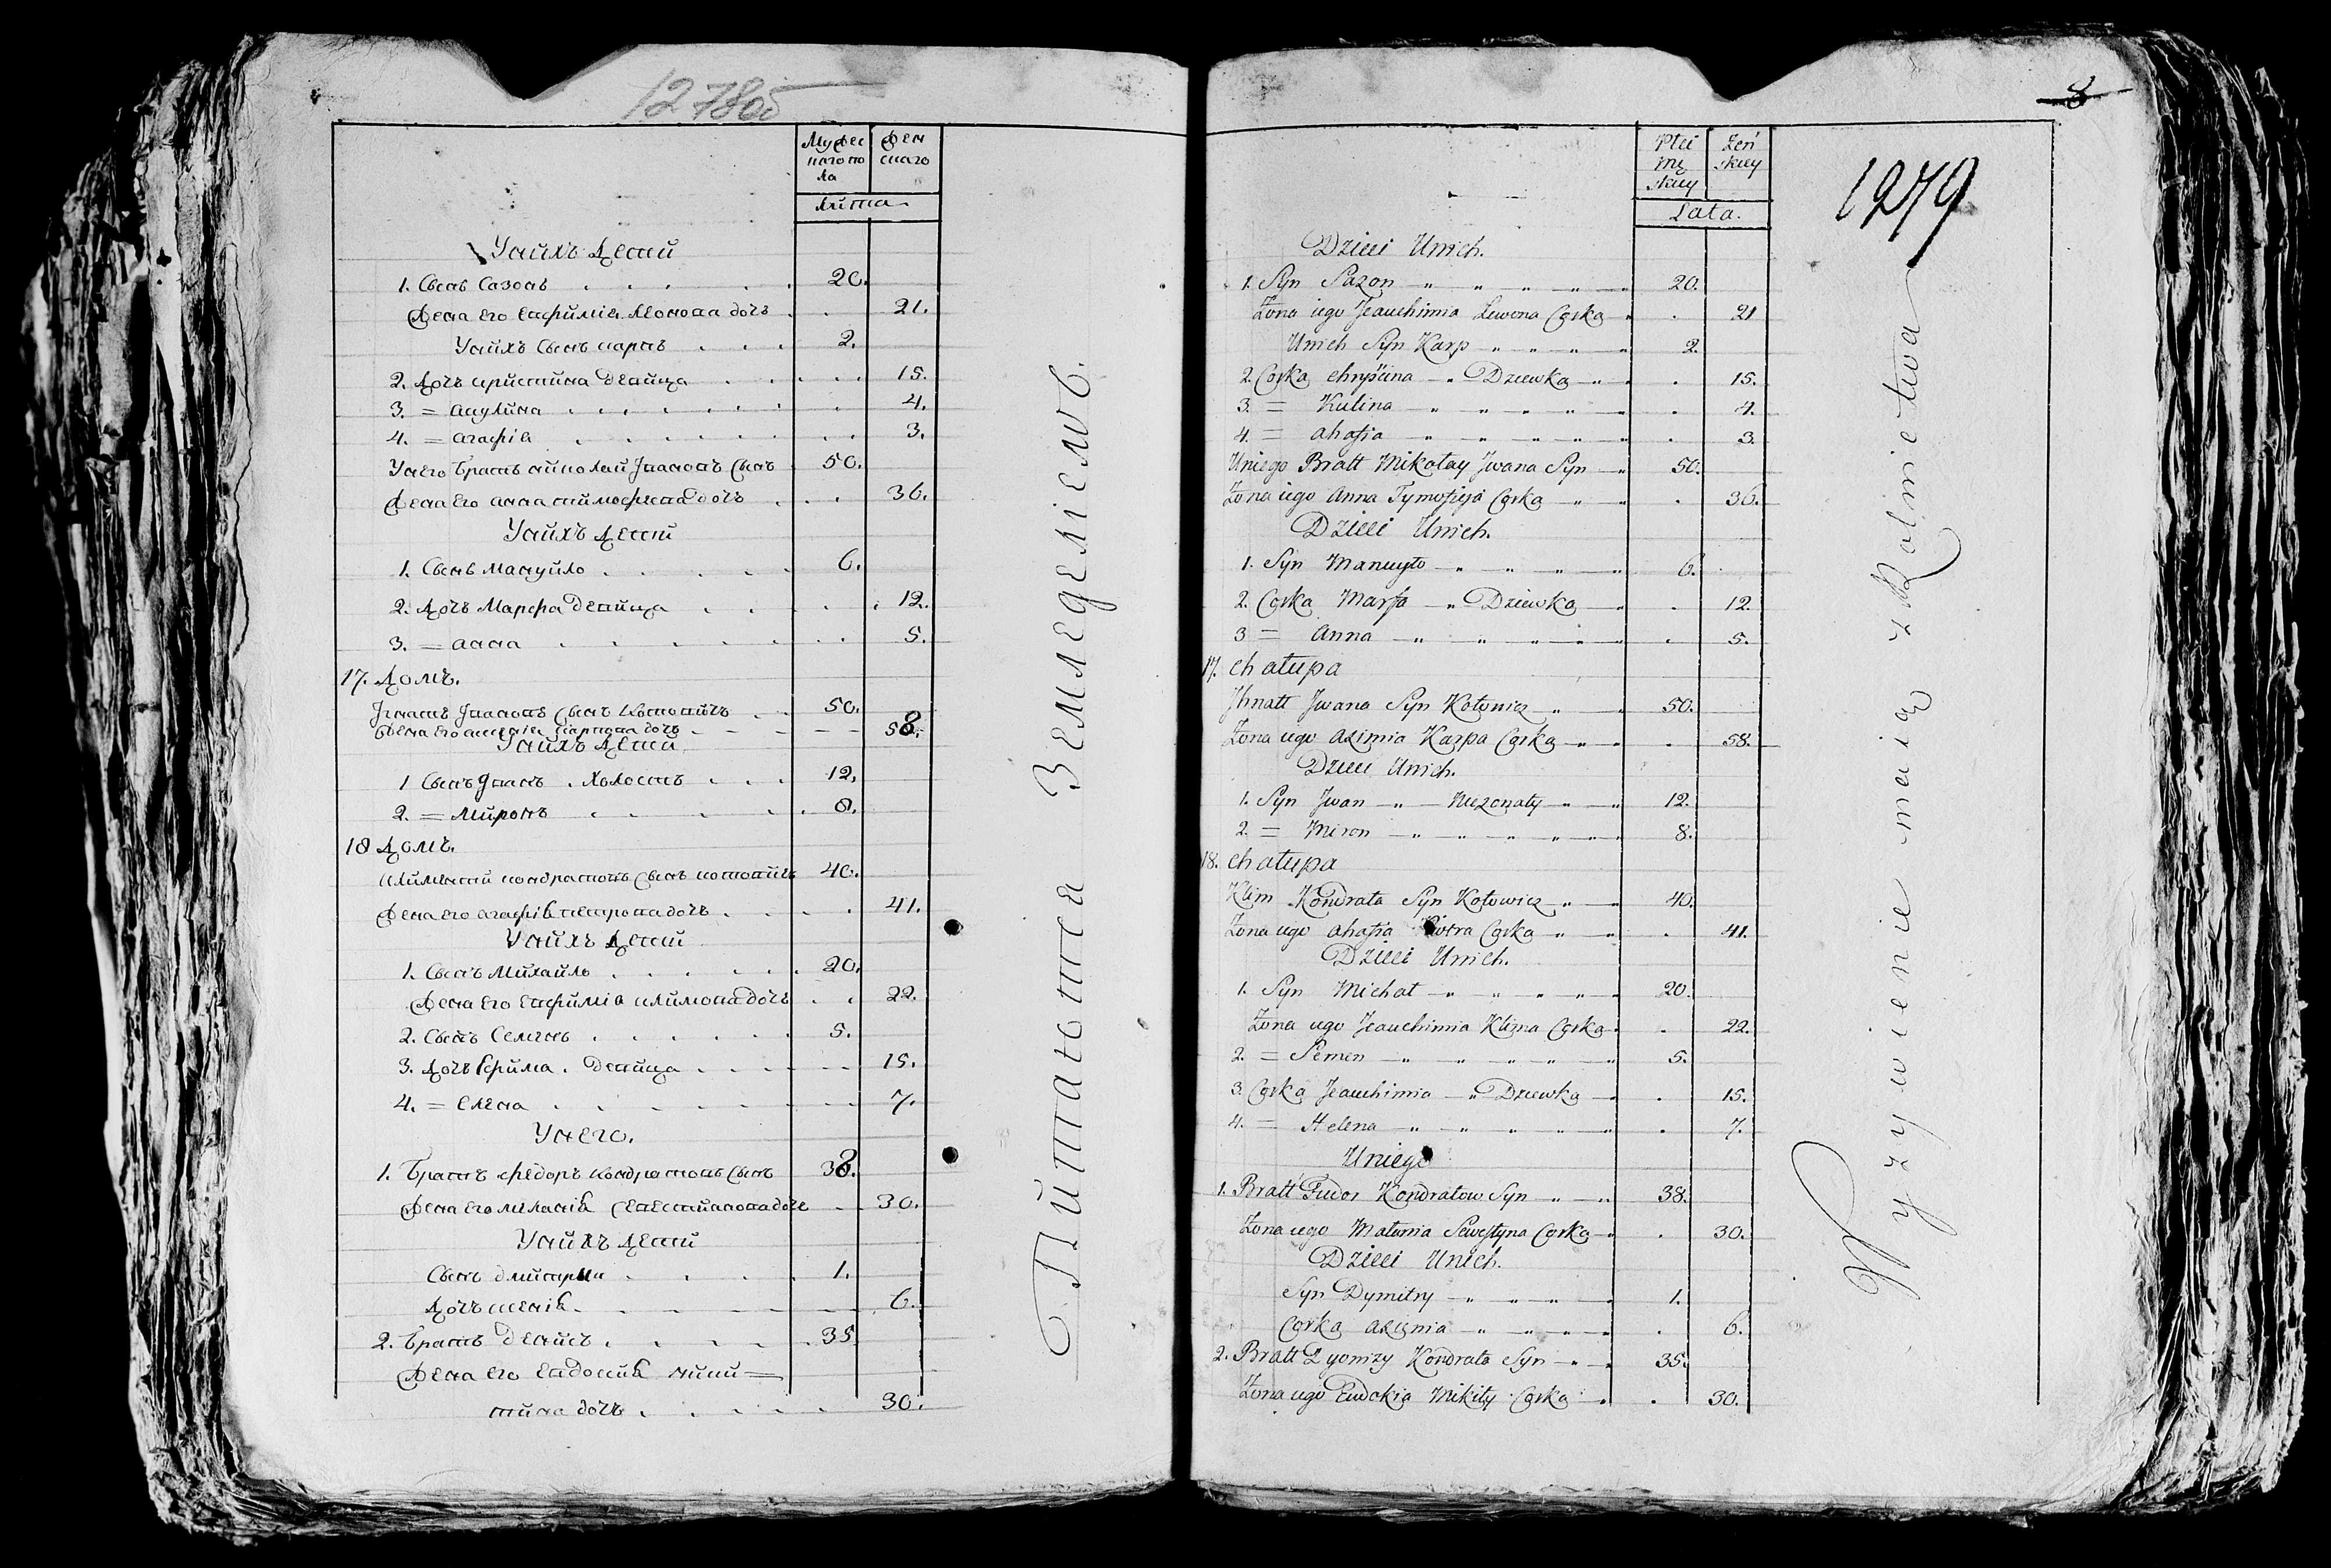 1278об
Мужес
каго по
ла
Жен
скаго
Лѣта
У нихъ Дети
1. Сынъ Сазонъ 20.
Жена его Евфимия Леонова дочь 21.
У нихъ Сынъ Карпъ 2.
2. Дочь Кристина девица 15.
3. = Акулина 4.
4. = Агафія 3.
У него Братъ Николай Івановъ Сынъ 50.
Жена его Анна Тимофеева дочь 36.
У нихъ Дети
1. Сынъ Мануйло 6.
2. Дочь Марфа девица 12.
3. = Анна 5.
17. Домъ.
Ігнатъ Івановъ Сынъ Котовичь 50.
Жена его Ксения Карпова дочь 58.
У нихъ Дети
1 Сынъ Іванъ . Холостъ 12.
2. = Миронъ 8.
18 Домъ.
Климентий Кондратовъ Сынъ Котовичь 40.
Жена его Агафія Петрова дочь 41.
У нихъ Дети
1. Сынъ Михайло 20.
Жена его Евфимія Климова дочь 22.
2. Сынъ Семенъ 5.
3. Дочь Ефима . девица 15.
4. = Елена 7.
У него.
1. Братъ Фёдоръ Кондратовъ Сынъ 38.
Жена его Меланія Севестиянова дочь 30.
У нихъ Дети
Сынъ Дмитрий 1.
Дочь Ксенія 6.
2. Братъ Денисъ 35
Жена его Евдокия Ники=
тина дочь 30.
Питаются Земледелiемъ.
8
1279
Płci
mę
skiey
Żeń
skiey
Lata.
Dzieci Unich.
1. Syn Sazon 20.
Żona iego Jeauchimia Lewona Corka 21
Unich Syn Karp 2.
2. Corka Chryścina Dziewka 15.
3. = Kulina 4.
4. = Ahafia 3.
Uniego Bratt Mikołay Jwana Syn 50.
Żona iego Anna Tymofieja Corka 36.
Dzieci Unich.
1. Syn Manuyło 6.
2. Corka Marfa Dziewka 12.
3 = Anna 5.
17. Chałupa
Jhnatt Jwana Syn Kotowicz 50.
Żona iego Axinia Karpa Corka 58.
Dzieci Unich.
1. Syn Jwan Nieżonaty 12.
2. = Miron 8.
18. Chałupa
Klim Kondrata Syn Kotowicz 40.
Żona iego Ahafia Piotra Corka 41.
Dzieci Unich.
1. Syn Michał 20.
Żona iego Jeauchimia Klima Corka 22.
2. = Semen 5.
3. Corka Jeauchimia Dziewka 15.
4. = Helena 7.
Uniego
1. Bratt Fudor Kondratow Syn 38.
Żona iego Małania Sewestyna Corka 30.
Dzieci Unich.
Syn Dymitry 1.
Corka Axinia 6.
2. Bratt Dyonizy Kondrata Syn 35.
Żona iego Eudokia Mikity Corka 30.
Wyżywienie maią z Rolnictwa